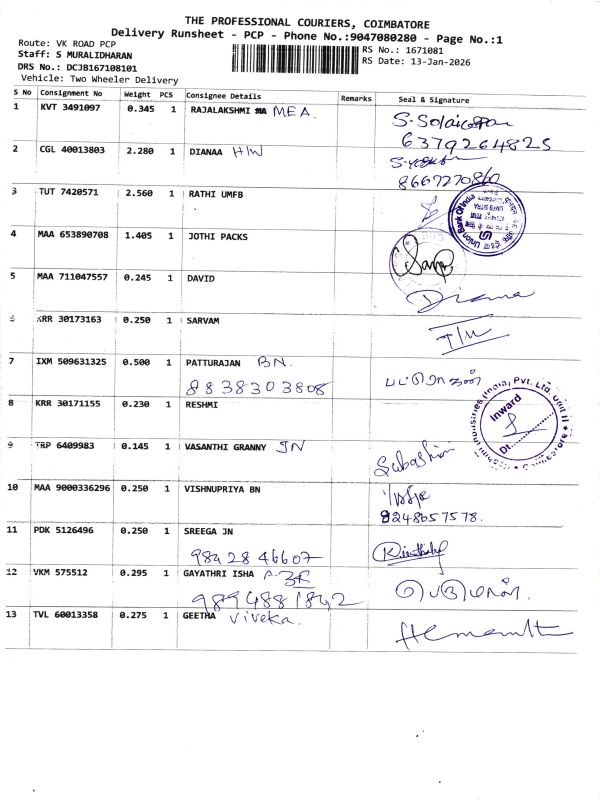 THE PROFESSIONAL COURIERS, COIMBATORE
Delivery Runsheet - PCP - Phone No.:9047080280 - Page No.:1
Route: VK ROAD PCP
Staff: S MURALIDHARAN
DRS No.: DCJB167108101
Vehicle: Two Wheeler Delivery
RS No.: 1671081
RS Date: 13-Jan-2026
S No Consignment No Weight PCS Consignee Details Remarks Seal & Signature
1 KVT 3491097 0.345 1 RAJALAKSHMI MA MEA.
6379264825
2 CGL 40013803 2.280 1 DIANAA H/W
8667270860
3 TUT 7420571 2.560 1 RATHI UMFB
Union Bank Of India
4 MAA 653890708 1.405 1 JOTHI PACKS
5 MAA 711047557 0.245 1 DAVID
Diana
6 KRR 30173163 0.250 1 SARVAM
7 IXM 509631325 0.500 1 PATTURAJAN BN.
8838303808
8 KRR 30171155 0.230 1 RESHMI
Inward
9 TRP 6409983 0.145 1 VASANTHI GRANNY JN
10 MAA 9000336296 0.250 1 VISHNUPRIYA BN
9248657578.
11 PDK 5126496 0.250 1 SREEGA JN
9842846607
12 VKM 575512 0.295 1 GAYATHRI ISHA
9894881842
13 TVL 60013358 0.275 1 GEETHA Viveka.